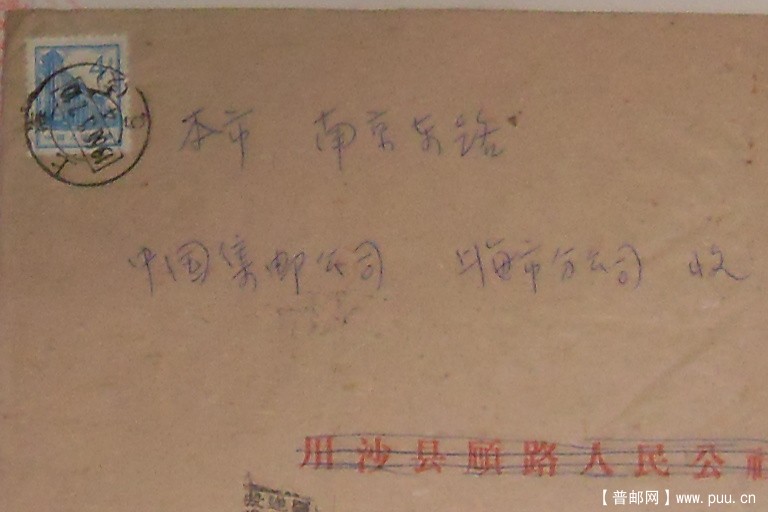 上海
本市 南京东路
中国集邮公司 上海市分公司 收
川沙县顾路人民公社
【普邮网】www.puu.cn